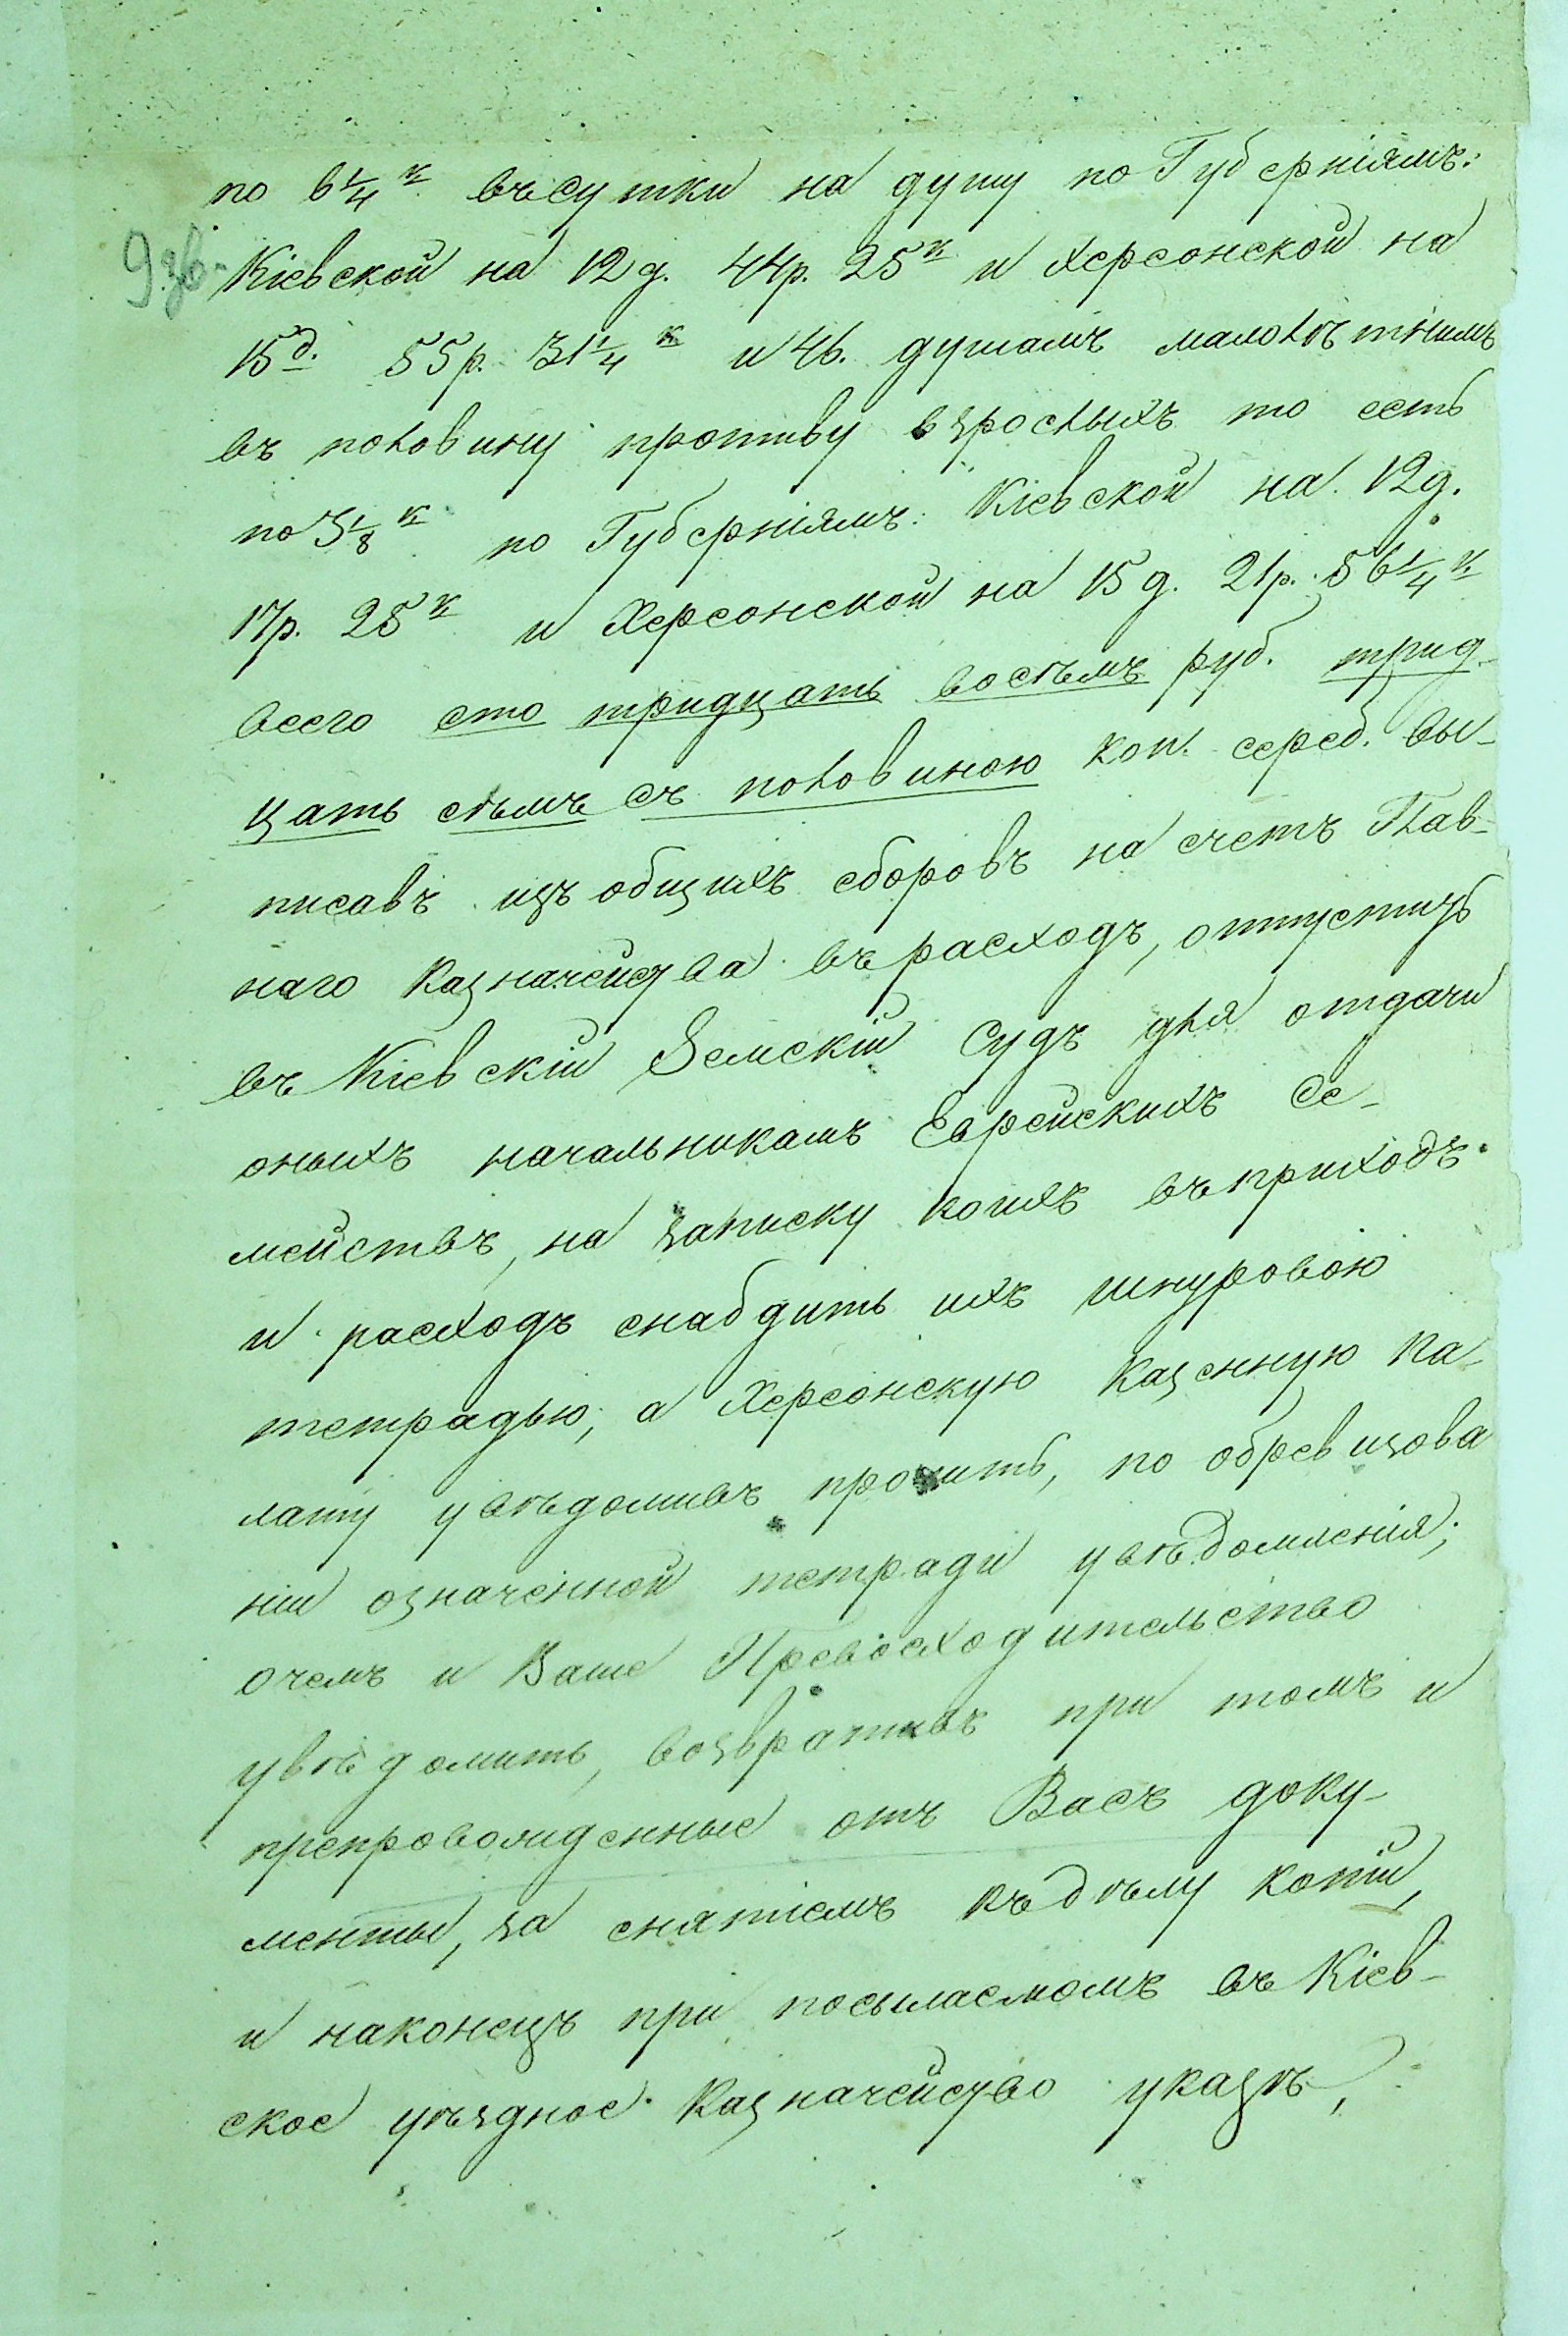 по 6 1/4 к въ сутки на душу по Губерніямъ:
9 зв.
Кіевской на 12 д. 44 р. 25 к и Херсонской на
15 д. 55 р. 31 1/4 к и 46. душамъ малолѣтнимъ
въ половину противу взрослыхъ то есть
по 3 1/8 к по Губерніямъ: Кіевской на 12 д.
17 р. 25 к и Херсонской на 15 д. 21 р. 56 1/4 к
всего сто тридцать восѣмъ руб. трид-
цать сѣмъ съ половиною коп. сереб. вы-
писавъ изъ общихъ сборовъ на счетъ Глав-
наго Казначейства въ расходъ, отпустить
въ Кіевскій Земскій Судъ для отдачи
оныхъ начальникамъ Еврейскихъ Се-
мействъ, на записку коихъ въ приходъ
и расходъ снабдить ихъ шнуровою
тетрадью, а Херсонскую Казенную Па-
лату увѣдомивъ просить, по обревизова
ніи означенной тетради увѣдомленія;
о чемъ и Ваше Превосходительство
увѣдомить, возвративъ при томъ и
препровожденные отъ Васъ доку-
менты, за снятіемъ къ дѣлу копіи,
и наконецъ при посылаемомъ въ Кіев-
ское уѣздное Казначейство указѣ,